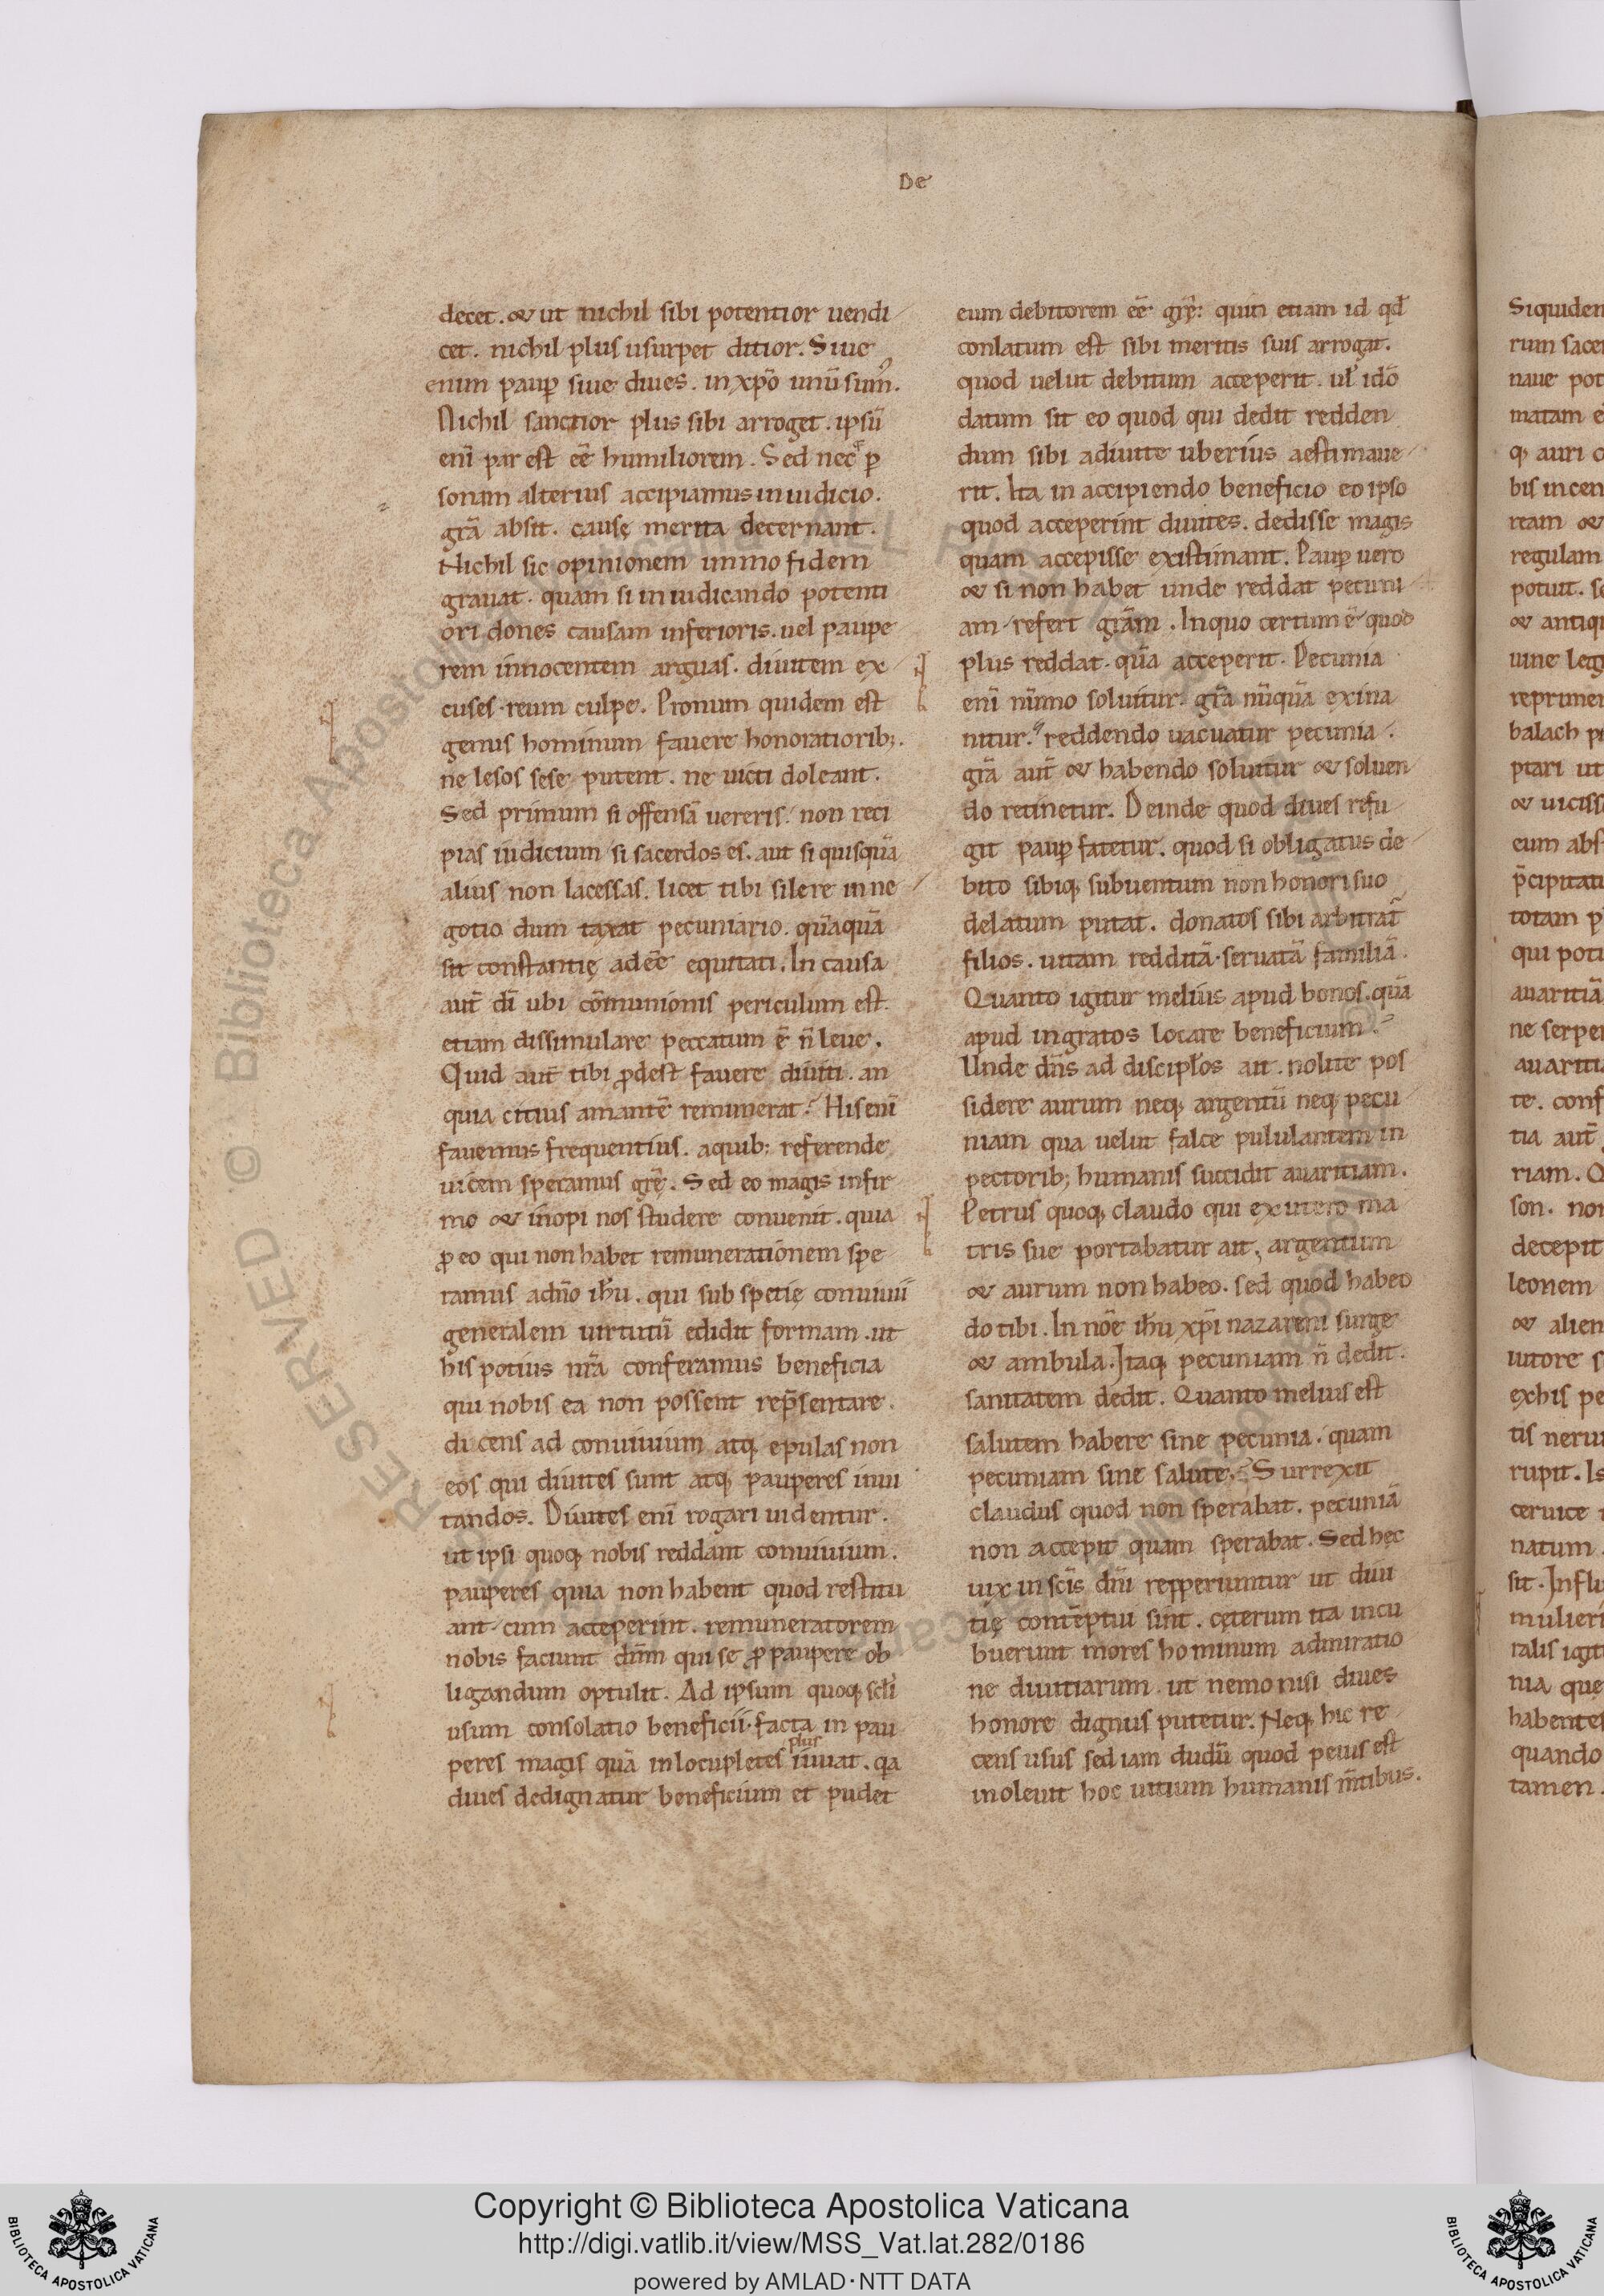 De
decet. & ut nichil sibi potentior uendi
cet. nichil plus usurpet ditior. Siue
enim paup̄ siue diues. in xp̄o unū sum᷒.
Nichil sanctior plus sibi arroget. ipsū
enī par est eē humiliorem. Sed nec p̄
sonam alterius accipiamus in iudicio.
gr̄a absit. causę merita decernant.
Nichil sic opinionem immo fidem
grauat. quam si in iudicando potenti
ori dones causam inferioris. uel paupe
rem innocentem arguas. diuitem ex
cuses reum culpe. Pronum quidem est
genus hominum fauere honoratiorib;.
ne lesos sese putent. ne uicti doleant.
Sed primum si offensā uereris. non reci
pias iudicium si sacerdos es. aut si quisquā
alius non lacessas. licet tibi silere in ne
gotio dum taxat pecuniario. quāquā
sit constantię adeē equitati. In causa
aut̄ dī ubi cōmunionis periculum est.
etiam dissimulare peccatum ē n̄ leue.
Quid aut̄ tibi ꝓdest fauere diuiti. an
quia citius amantē remunerat? His enī
fauemus frequentius. a quib; referende
uicem speramus grę̄. Sed eo magis infir
mo & inopi nos studere conuenit. quia
ꝓ eo qui non habet remunerationem spe
ramus a dn̄o ih̄u. qui sub spetię conuiuii
generalem uirtutū edidit formam. ut
his potius nr̄a conferamus beneficia
qui nobis ea non possent rep̄sentare.
dicens ad conuiuium atq; epulas non
eos qui diuites sunt atq; pauperes inui
tandos. Diuites enī rogari uidentur.
ut ipsi quoq; nobis reddant conuiuium.
pauperes quia non habent quod restitu
ant cum acceperint. remuneratorem
nobis faciunt dn̄m qui se ꝓ paupere ob
ligandum optulit. Ad ipsum quoq; scl̄i
usum consolatio beneficii facta in pau
plus
peres magis quā in locupletes iuuat. qa
diues dedignatur beneficium et pudet
eum debitorem eē grę̄: quin etiam id qd̄
conlatum est sibi meritis suis arrogat.
quod uelut debitum acceperit. ul̄ idō
datum sit eo quod qui dedit redden
dum sibi a diuite uberius aestimaue
rit. Ita in accipiendo beneficio eo ipso
quod acceperint diuites. dedisse magis
quam accepisse existimant. Paup̄ uero
& si non habet unde reddat pecuni
am refert gr̄am. In quo certum ē quod
plus reddat quā acceperit. Pecunia
enī nūmo soluitur. gr̄a nūquā exina
nitur. reddendo uacuatur pecunia.
gr̄a aut̄ & habendo soluitur & soluen
do retinetur. Deinde quod diues refu
git paup̄ fatetur. quod si obligatus de
bito sibiq; subuentum non honori suo
delatum putat. donatos sibi arbitrat̄
filios. uitam redditā seruatā familiā.
Quanto igitur melius apud bonos. quā
apud ingratos locare beneficium?
Unde dn̄s ad discipl̄os ait. nolite pos
sidere aurum neq; argentū neq; pecu
niam qua uelut falce pululantem in
pectorib; humanis succidit auaritiam.
Petrus quoq; claudo qui ex utero ma
tris sue portabatur ait, argentum
& aurum non habeo. sed quod habeo
do tibi. In nōe ih̄u xp̄i nazareni surge
& ambula. Itaq; pecuniam n̄ dedit.
sanitatem dedit. Quanto melius est
salutem habere sine pecunia. quam
pecuniam sine salute? Surrexit
claudus quod non sperabat. pecuniā
non accepit quam sperabat. Sed hęc
uix in scīs dn̄i repperiuntur ut diui
tię contēptui sint. cęterum ita incu
buerunt mores hominum admiratio
ne diuitiarum. ut nemo nisi diues
honore dignus putetur. Neq; hic re
cens usus sed iam dudū quod peius est
inoleuit hoc uitium humanis mn̄tibus.
Siquiden
rum sacer
naue pot
matam e
q; auri c
bis incen
ream &
regulam
potuit. se
& antiqu
uine leg
reprimer
balach p
ptari ut
& uiciss
cum abs
p̄cipitati
totam p
qui potu
auaritiā
ne serpe
auariti
te. conf
tia aut̄
riam. Q
son. non
decepit
leonem
& alien
uitore s
exhis pe
tis neru
rupit. Is
ceruice
natum.
sit. Influ
mulieri
ralis igit
nia que
habentes
quando
tamen.
Copyright © Biblioteca Apostolica Vaticana
http://digi.vatlib.it/view/MSS_Vat.lat.282/0186
powered by AMLAD·NTT DATA
BIBLIOTECA APOSTOLICA VATICANA
BIBLIOTECA APOSTOLICA VATICANA